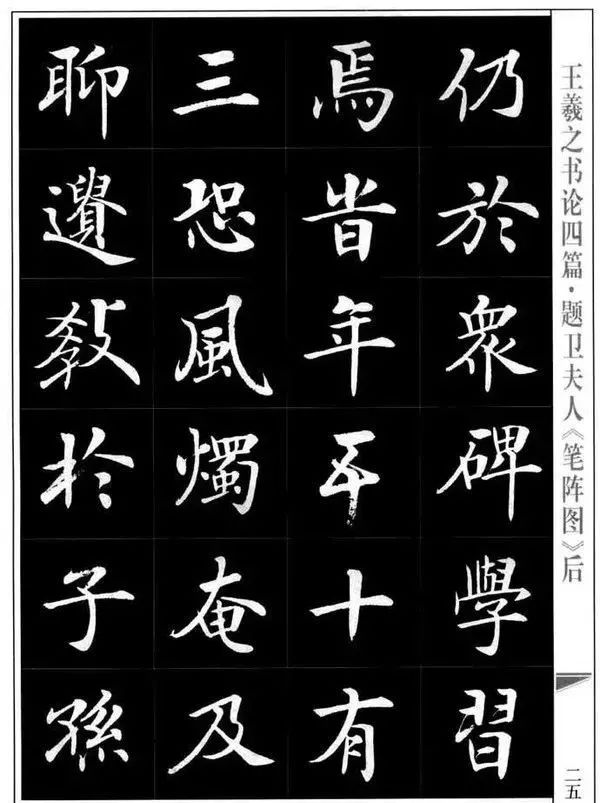 仍於衆碑學習
焉旹年五十有
三恐風燭奄及
聊遺教於子孫
王羲之书论四篇·题卫夫人《笔阵图》后
二五